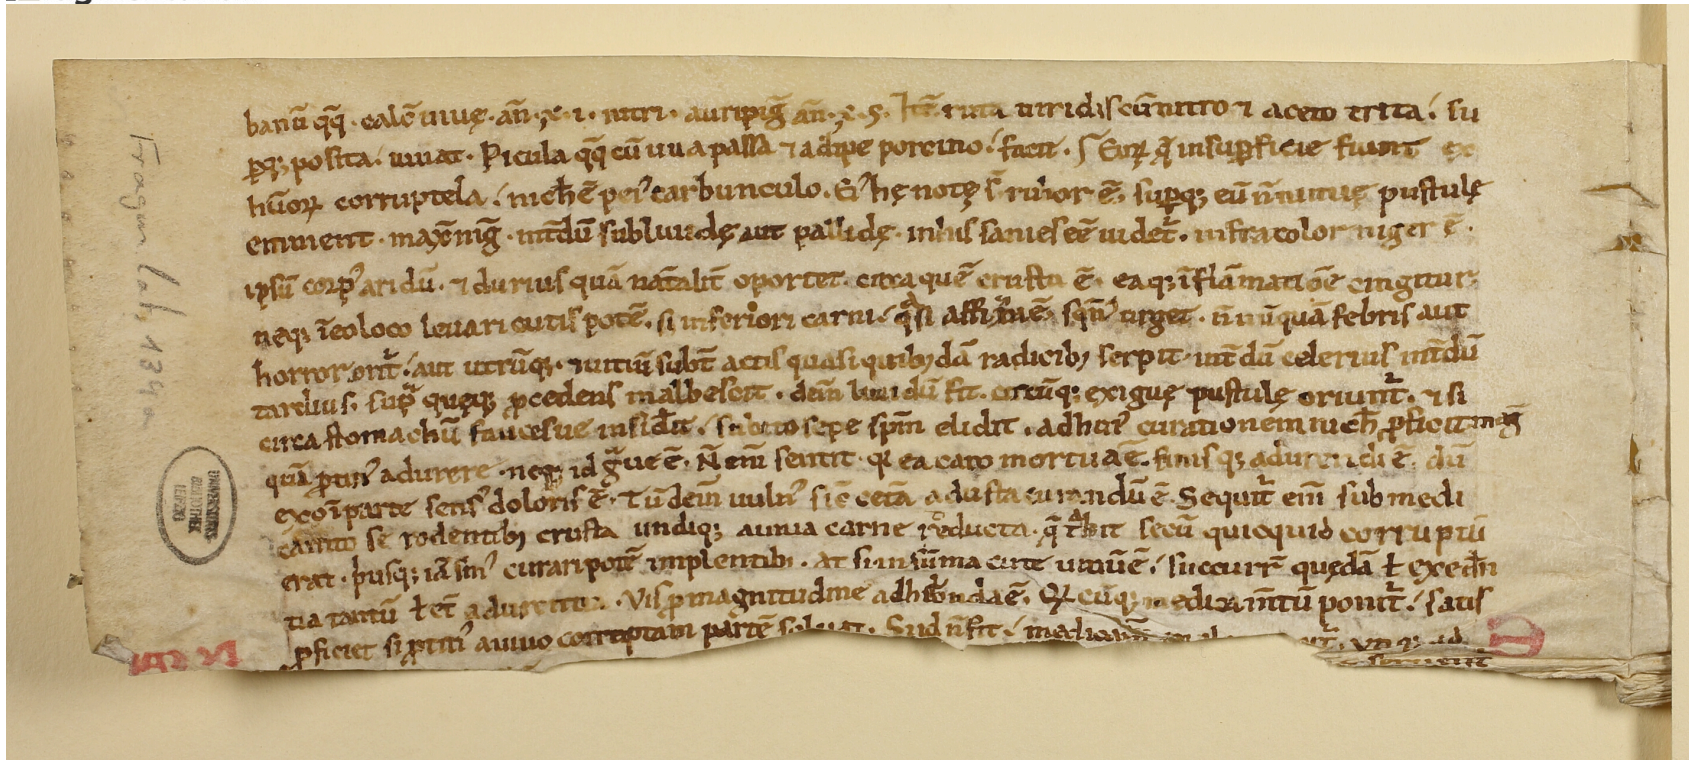 banū qq̄. calc̄ uiuę. an̄. ʒ. i. nitri. auripiḡ an̄. ʒ. s. Itē ruta uiridis cū nitro ⁊ aceto trita. su
ꝑq; posita. iuuat. Picula qq̄ cū uua passa ⁊ adipe porcino. facit. Eoꝝ q̄ in suꝑficie fiunt ex
hūoꝝ corruptela. nich̄ ē pei᷒ carbunculo. Ei᷒ hę notę s̄ rubor ē. suꝑq; eū n̄ nimię pustulę
eminent. maxīe niḡ. int̄dū subliuidę aut pallidę. in his sanies eē uidet᷑. infra color niger ē.
ipsū corp᷒ aridū. ⁊ durius quā nat̄alit̄ oportet. circa quē crusta ē. eaq; īflāmatiōe cingitur.
neq; ī eo loco leuari cutis potē. si inferiori carni q̄si affixa ē. sōn᷒ urget. n̄nūquā febris aut
horror orit᷑. aut utrūq;. ⁊ uitiū subt̄ actis quasi quibꝰdā radicibꝰ serpit. int̄dū celerius int̄dū
tardius. sup̄ quęq; ꝓcedens inalbescit. dein̄ liuidū fit. circūq; exiguę pustulę oriunt᷑. ⁊ si
circa stomachū faucesue insidit. subito sepe spm̄ elidit. ad hui᷒ curationem nich̄ ꝓficit maḡ
quā ꝓtin᷒ adurere. neq; id g̃ue ē. N̄ enī sentit. qꝛ ea caro mortua ē. finisq; adurendi ē. dū
ex oī parte sens᷒ doloris ē. Tū dein̄ uuln᷒ sic̄ cet̄a adusta curandū ē. Sequit᷑ enī sub medi
cam̄to se rodentibꝰ crusta undiq; a uiua carne reducta. q̄ t̄hit secū quicquid corruptū
erat. purusq; iā sin᷒ curari potē implentibꝰ. At si in sūma cute uitiū ē. succurr̄ quędā ł exedn̄
tia tantū ł et̄ adurentia. Vis ꝓ magnitudine adhibenda ē. Qd cūq; medicam̄tū ponit᷑. satis
ꝓficiet si ꝓtin᷒ a uiuo corruptam partē soluit. Sed n̄ fit. medicam̄
Fragm. lat. 134a
UNIVERSITÄTS
BIBLIOTHEK
LEIPZIG